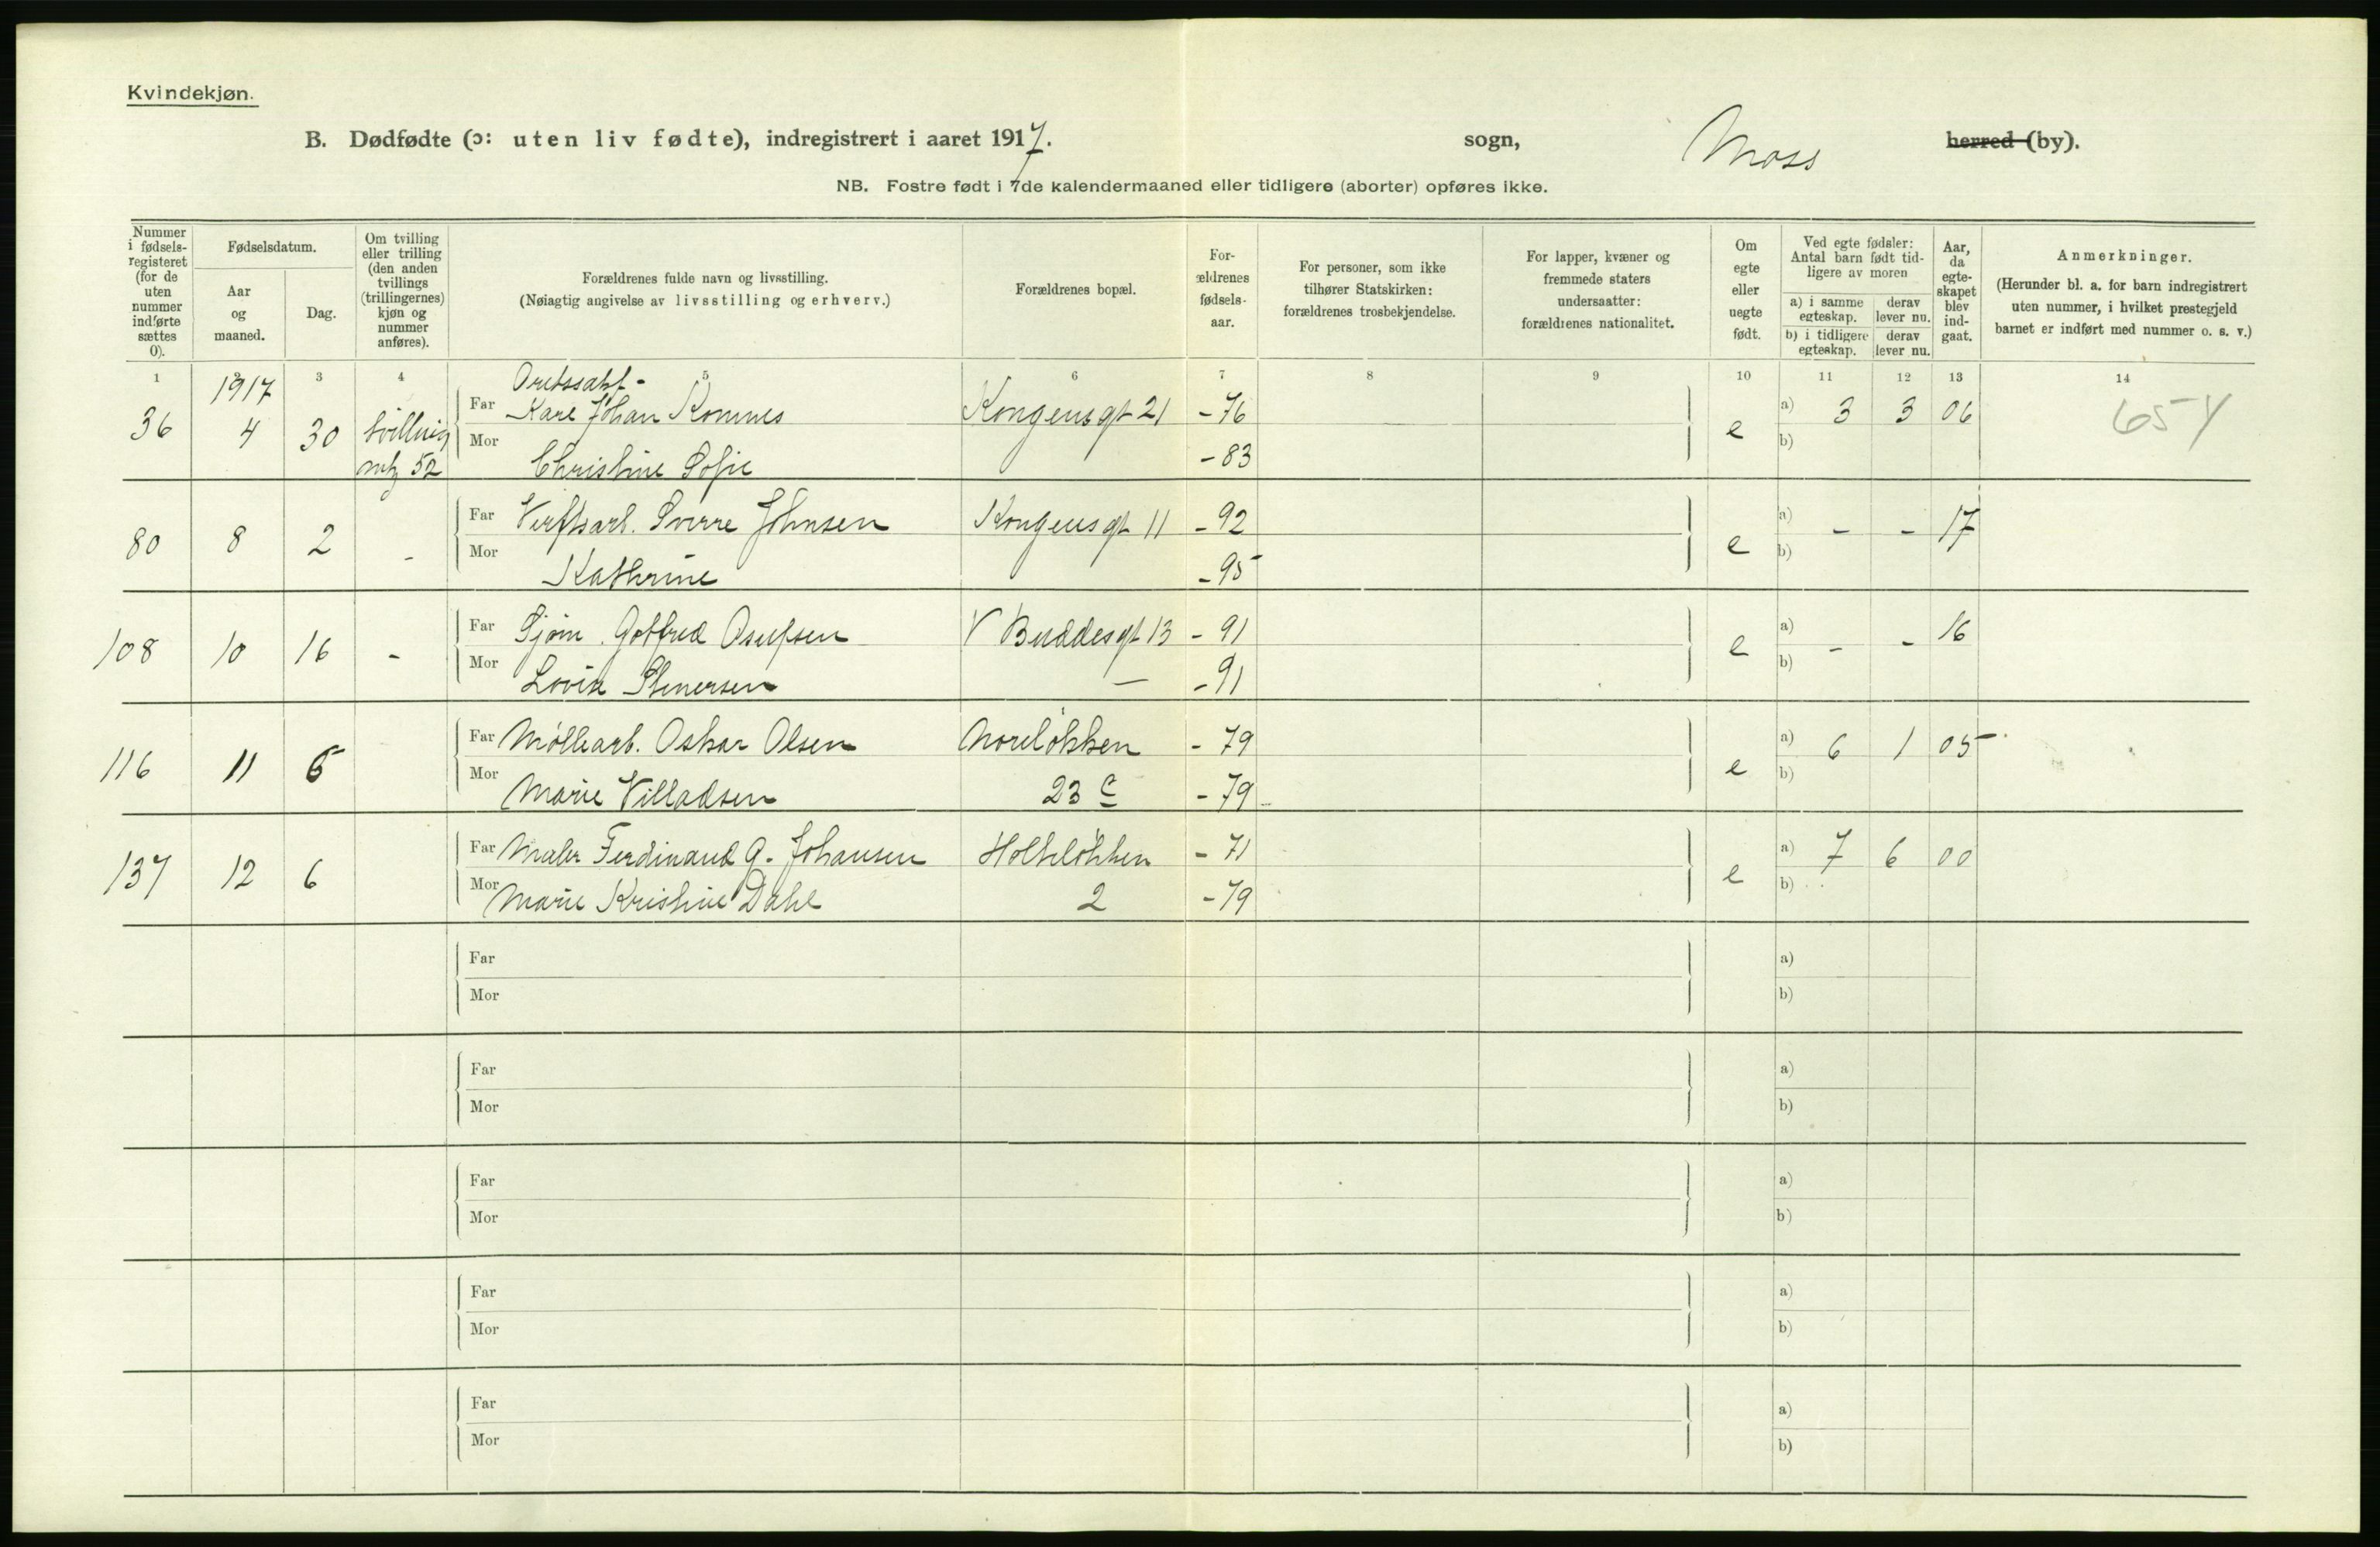 Kvindekjøn.
B. Dødfødte (ɔ: uten liv fødte), indregistrert i aaret 1917. sogn, Moss herred (by).
NB. Fostre født i 7de kalendermaaned eller tidligere (aborter) opføres ikke.
Nummer i fødsels-registeret (for de uten nummer indførte sættes 0).
Fødselsdatum.
Aar og maaned.
Dag.
Om tvilling eller trilling (den anden tvillings (trillingernes) kjøn og nummer anføres).
Forældrenes fulde navn og livsstilling.
(Nøiagtig angivelse av livsstilling og erhverv.)
Forældrenes bopæl.
For-ældrenes fødsels-aar.
For personer, som ikke tilhører Statskirken: forældrenes trosbekjendelse.
For lapper, kvæner og fremmede staters undersaatter: forældrenes nationalitet.
Om egte eller uegte født.
Ved egte fødsler: Antal barn født tid-ligere av moren
a) i samme egteskap. derav lever nu.
b) i tidligere egteskap. derav lever nu.
Aar, da egte-skapet blev ind-gaat.
Anmerkninger.
(Herunder bl. a. for barn indregistrert uten nummer, i hvilket prestegjeld barnet er indført med nummer o. s. v.)
1 2 3 4 5 6 7 8 9 10 11 12 13 14
1917
36 4 30 tvilling Far Karl Johan Komnes Kongensgt 21 - 76 e a) 3 3 06
52 Mor Christine Sofie - 83 b)
80 8 2 - Far Verftsarb. Sverre Johnsen Kongensgt 11 - 92 e a) - - 17
Mor Kathrine - 95 b)
108 10 16 - Far Sjøm. Gotfred Osufsen V Buddesgt 13 - 91 e a) - - 16
Mor Lovise Stenersen — - 91 b)
116 11 5 Far Møllearb. Oskar Olsen Noreløkken - 79 e a) 6 1 05
Mor Marie Villadsen 23 c - 79 b)
137 12 6 Far Maler Ferdinand G. Johansen Holteløkken - 71 e a) 7 6 00
Mor Marie Kristine Dahl 2 - 79 b)
Far a)
Mor b)
Far a)
Mor b)
Far a)
Mor b)
Far a)
Mor b)
Far a)
Mor b)